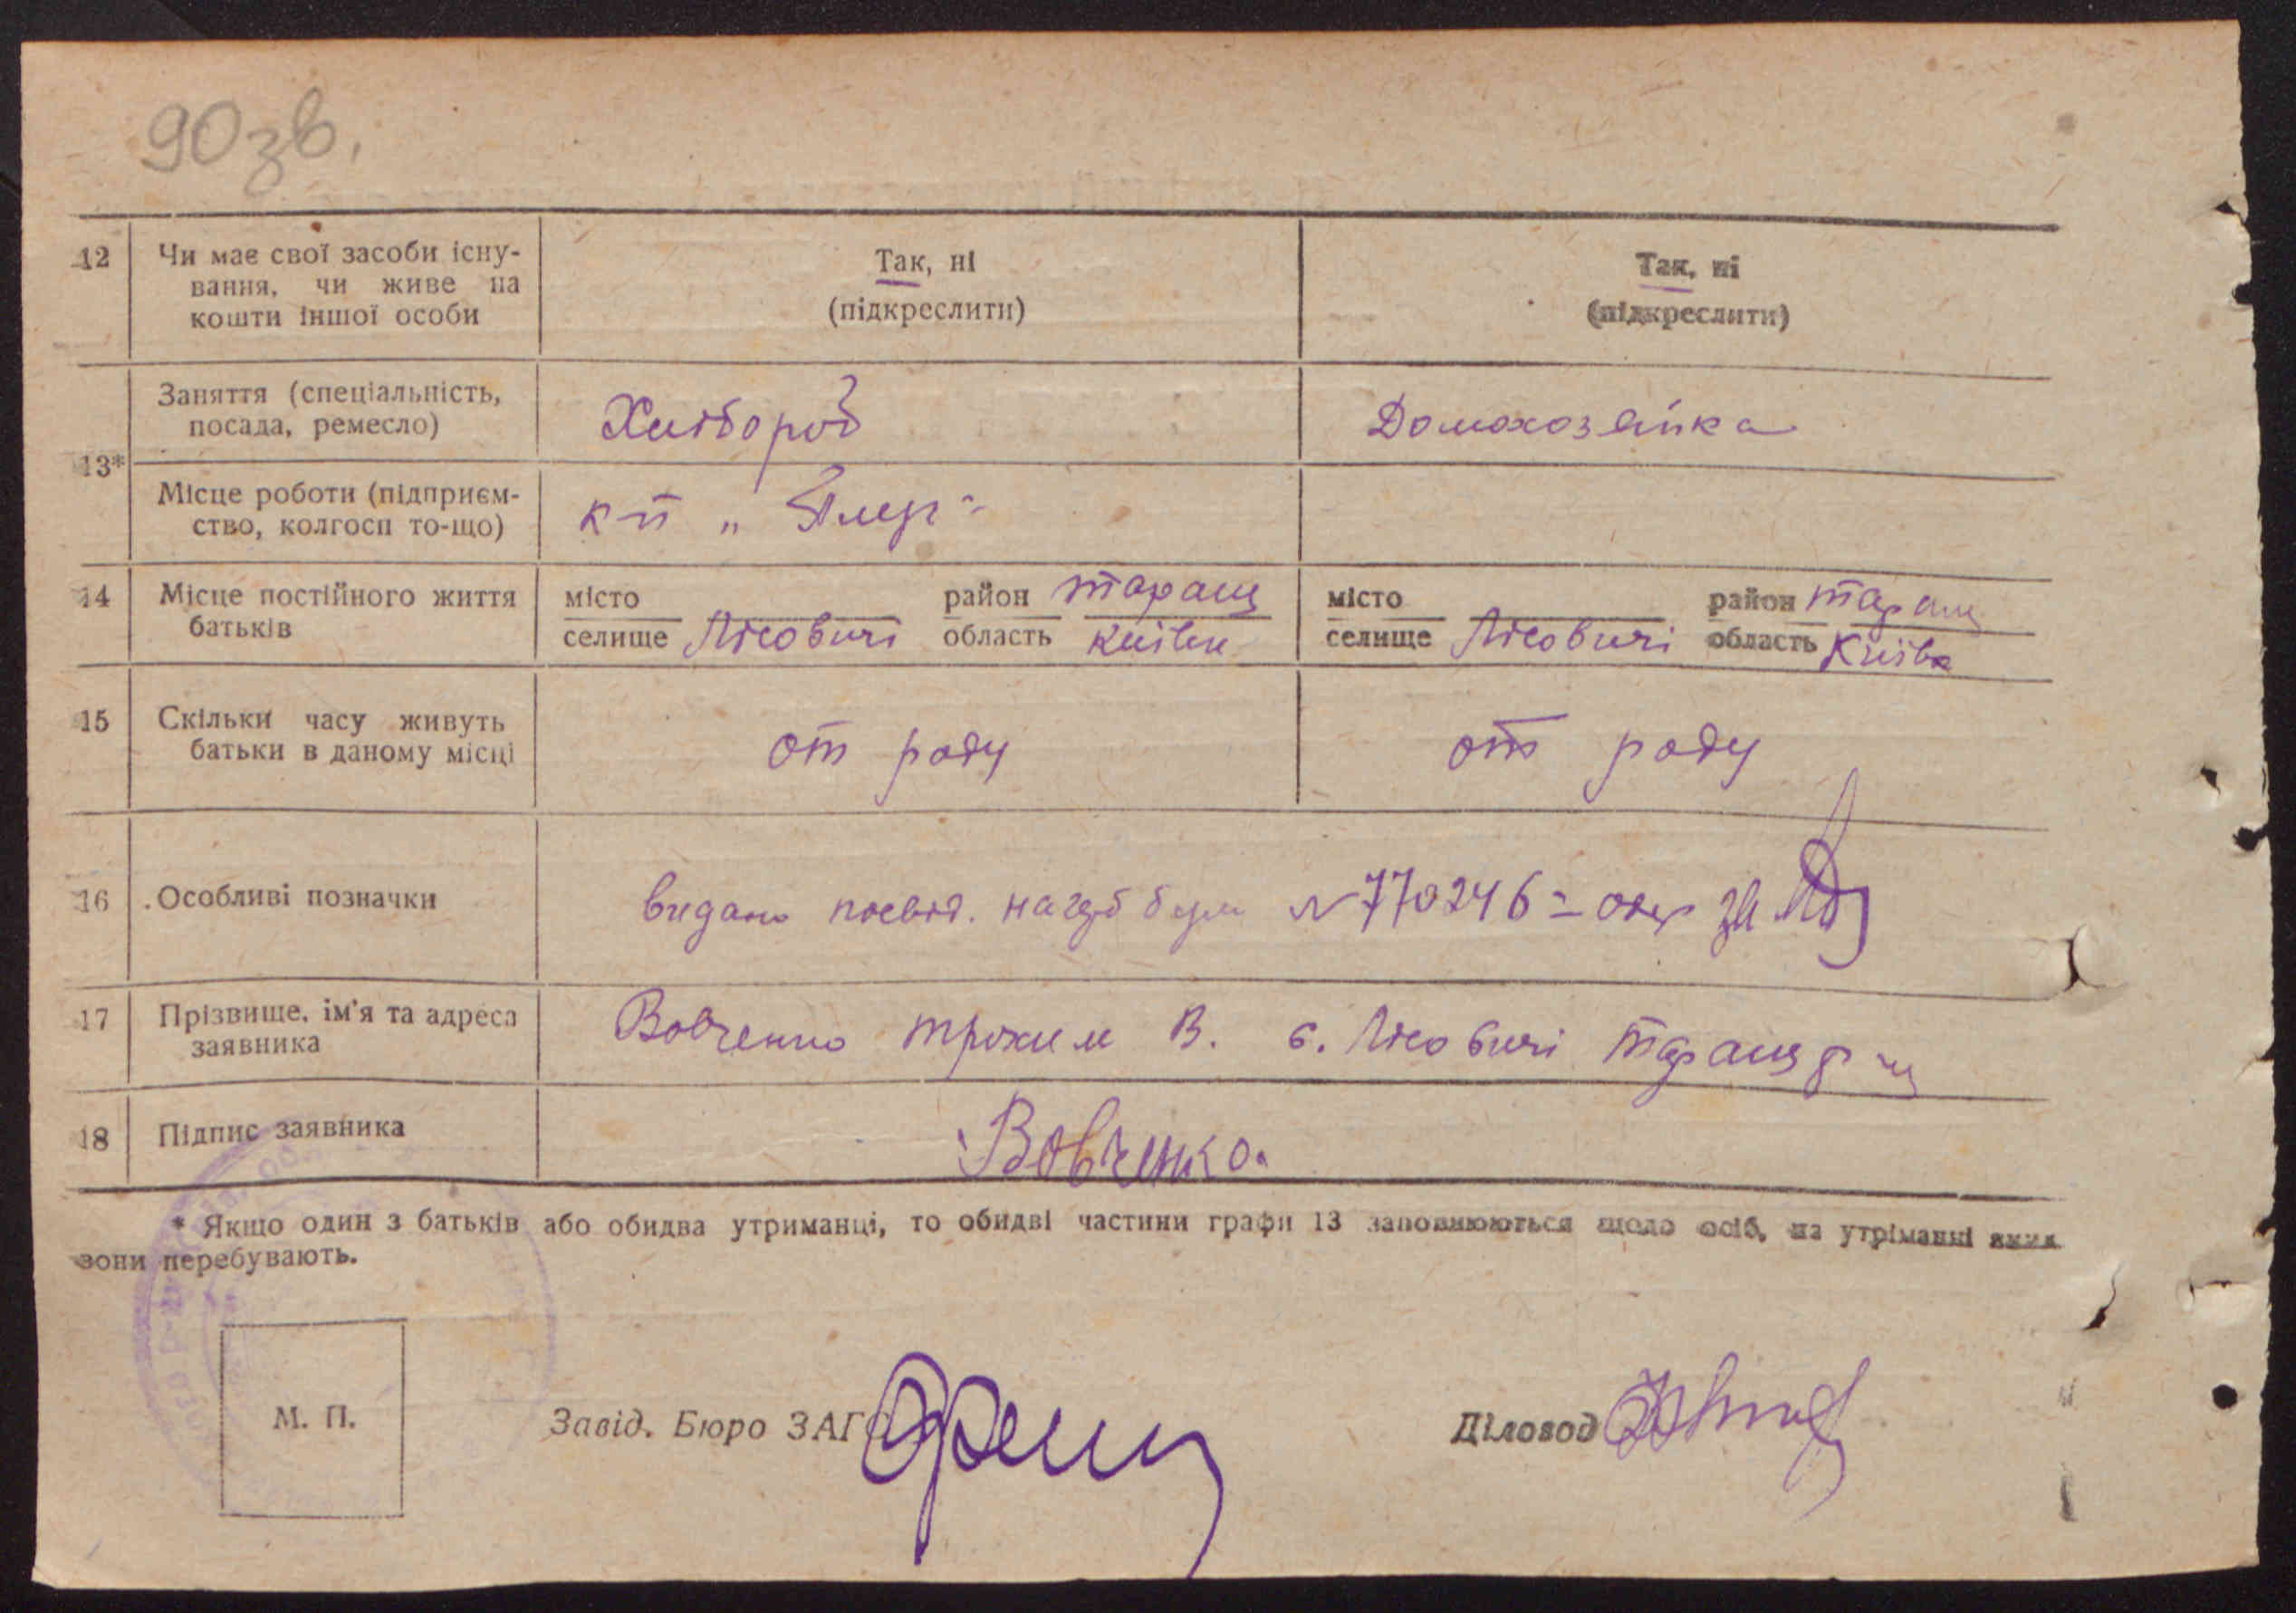 90 зв.
12 Чи має свої засоби існу- Так, ні Так, ні
вання, чи живе на (підкреслити) (підкреслити)
кошти іншої особи
Заняття (спеціальність, Хлібороб Домохозяйка
посада, ремесло)
13*
Місце роботи (підприєм- к-п
ство, колгосп то-що)
14 Місце постійного життя місто район Таращ місто район Таращ
батьків селище Лісовичі область Київск селище Лісовичі область Київск
15 Скільки часу живуть от роду от роду
батьки в даному місці
16 Особливі позначки видано посвід. № 770246
17 Прізвище, ім'я та адреса Вовченко Трохим В. с. Лісовичі Таращ р-ну
заявника
18 Підпис заявника Вовченко.
* Якщо один з батьків або обидва утриманці, то обидві частини графи 13 заповнюються щодо осіб, на утріманні яких
вони перебувають.
М. П. Завід. Бюро ЗАГС Діловод